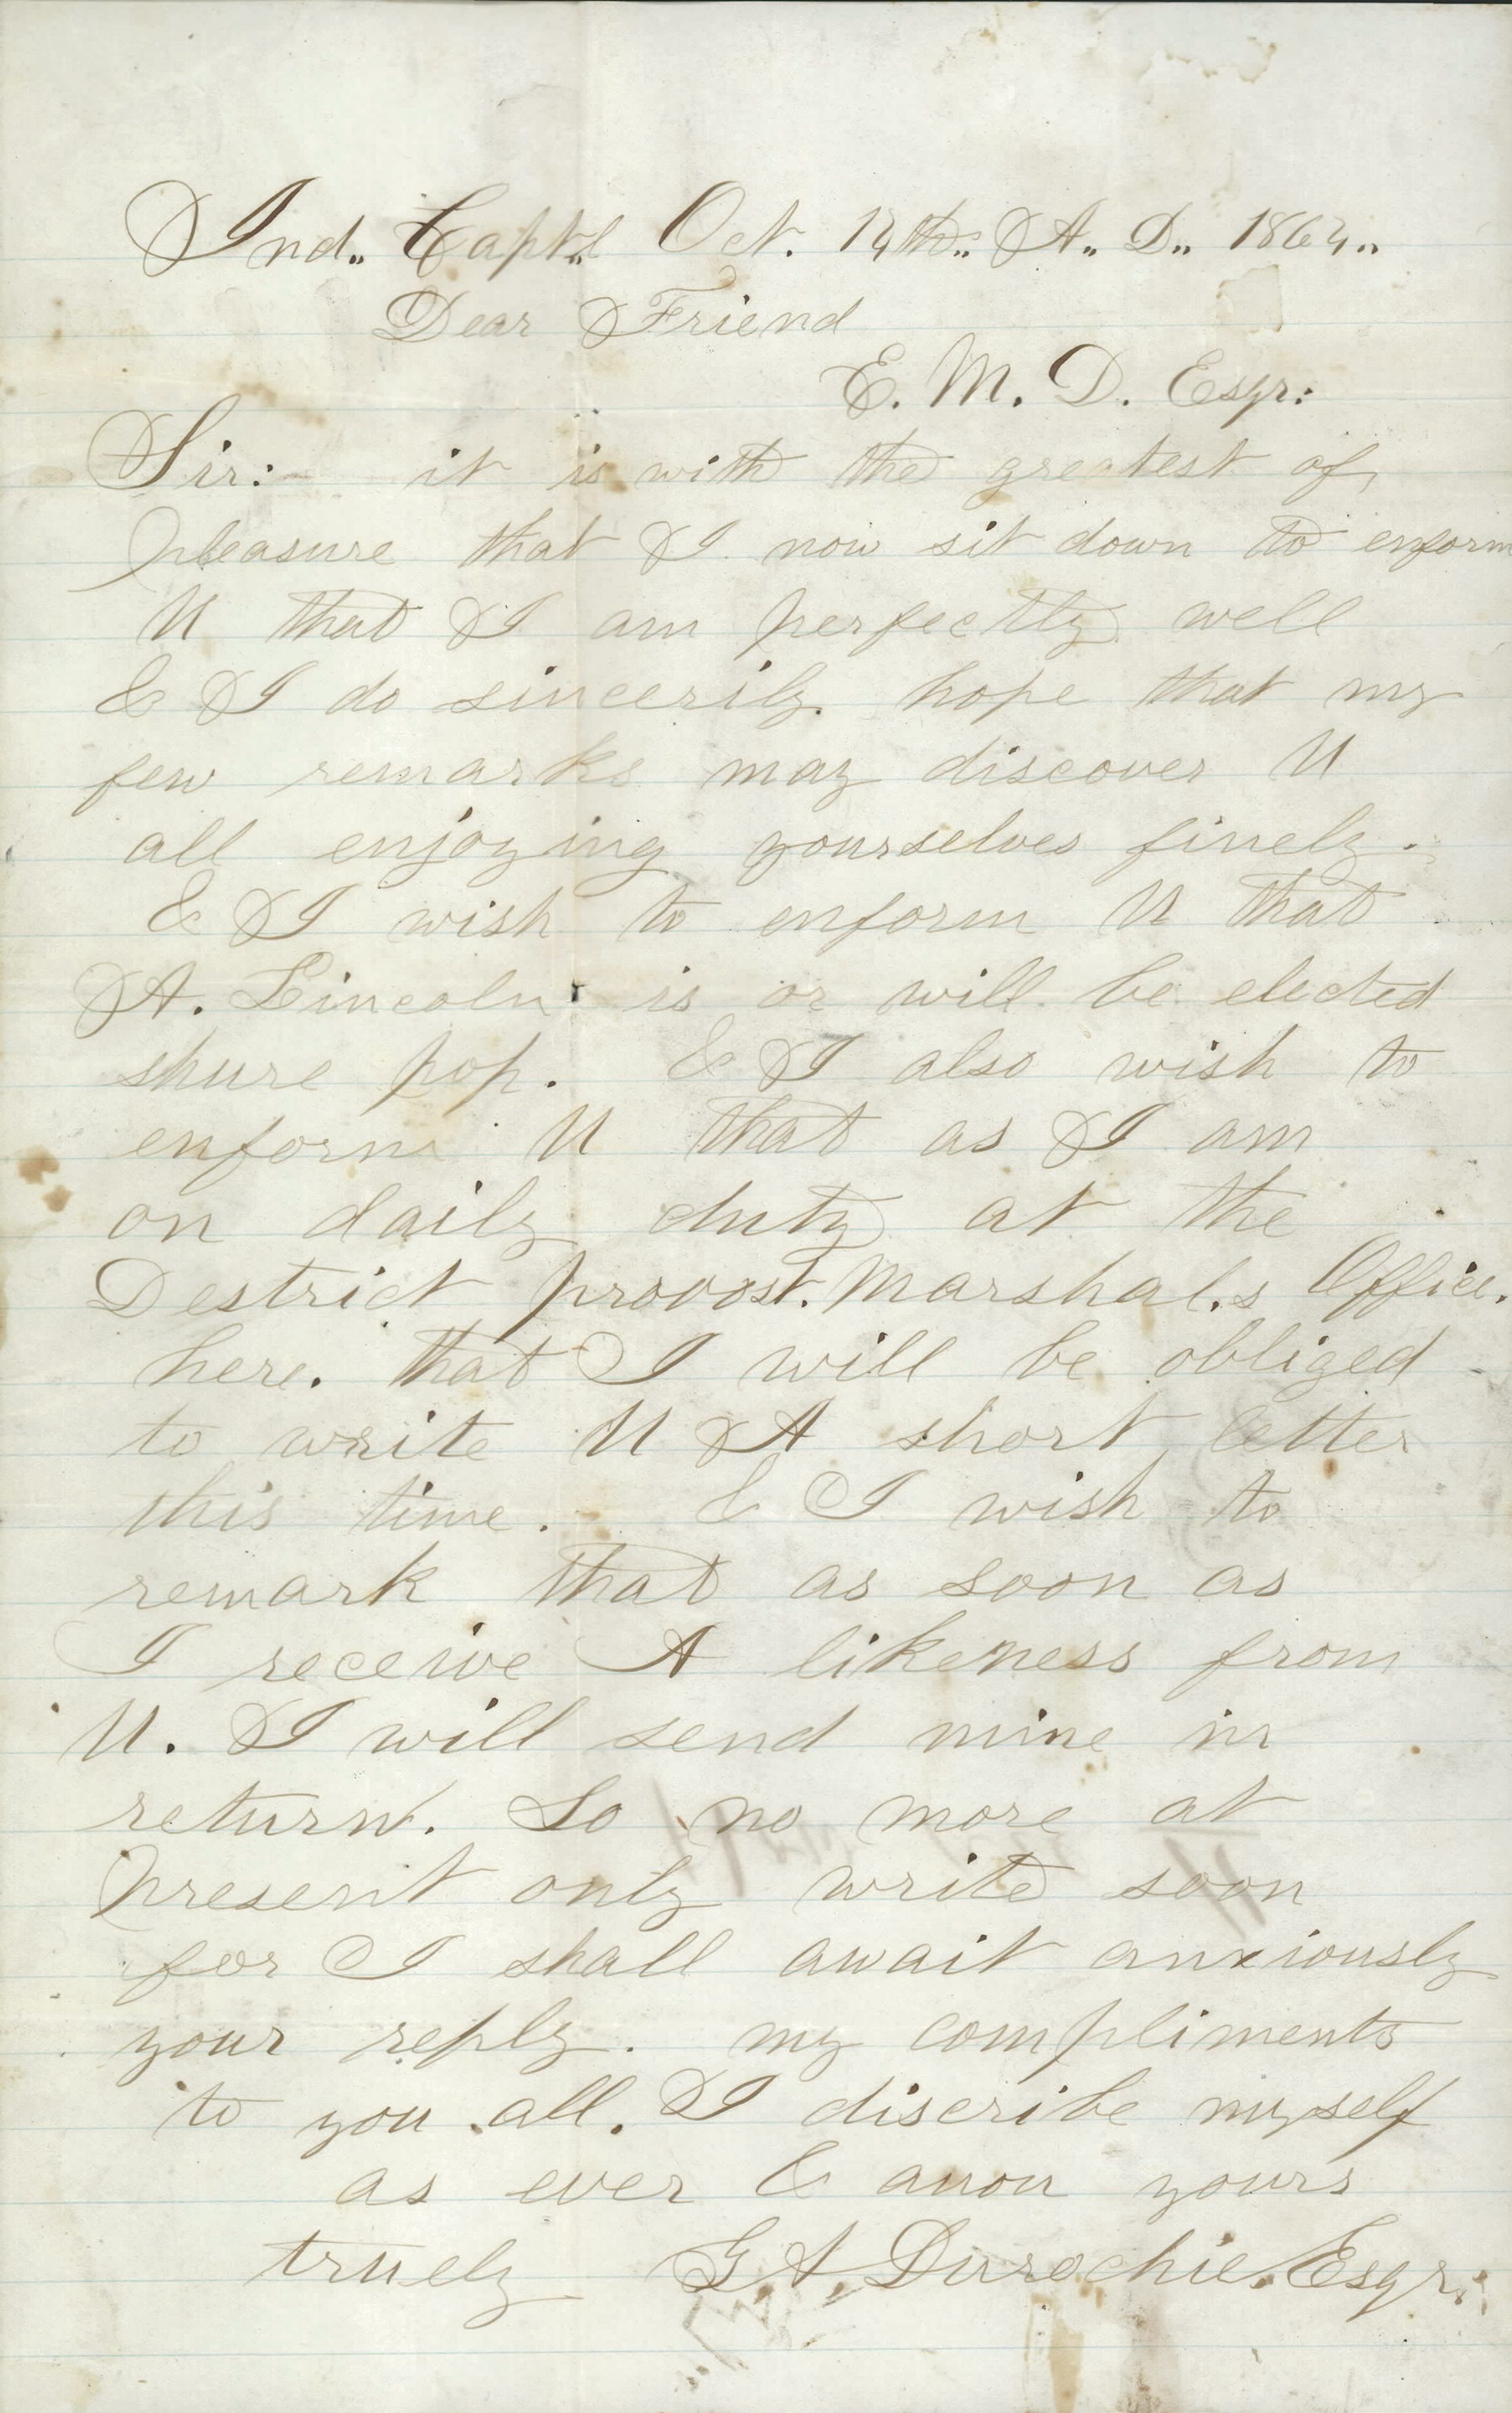 Ind.. Captl.. Oct. 14th.. A.. D.. 1864..
Dear Friend
E. M. D. Esqr:
Sir: it is with the greatest of,
pleasure that I now sit down to enform
U that I am perfectly well
& I do sincerily hope that my
few remarks may discover U
all enjoying yourselves finely.
& I wish to enform U that
A. Lincoln is or will be elected
shure pop. & I also wish to
enform U that as I am
on daily duty at the
Destrict provost. Marshal,s Office.
here. that I will be obliged
to write U A short letter
this time. & I wish to
remark that as soon as
I receive A likeness from
U. I will send mine in
return. So no more at
present only write soon
for I shall await anxiously
your reply. my compliments
to you all. I discribe myself
as ever & anon yours
truely G. A. Durochie. Esqr.